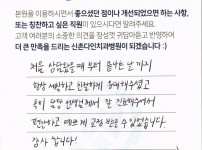 본원을 이용하시면서 좋았었던 점이나 개선되었으면 하는 사항,
또는 칭찬하고 싶은 직원이 있으시다면 말려주세요.
고객 여러분의 소중한 의견을 정성껏 귀담아듣고 반영하여
더 큰 만족을 드리는 신촌다인치과병원이 되겠습니다 :)
처음 상담받을 때 부터 끝나는 날 까지
항상 세심하고 친절하게 응대해주셨고
특히 담당 선생님께서 잘 진료해주셔서
편안하고 예쁘게 교정 받을 수 있었습니다.
감사 합니다!